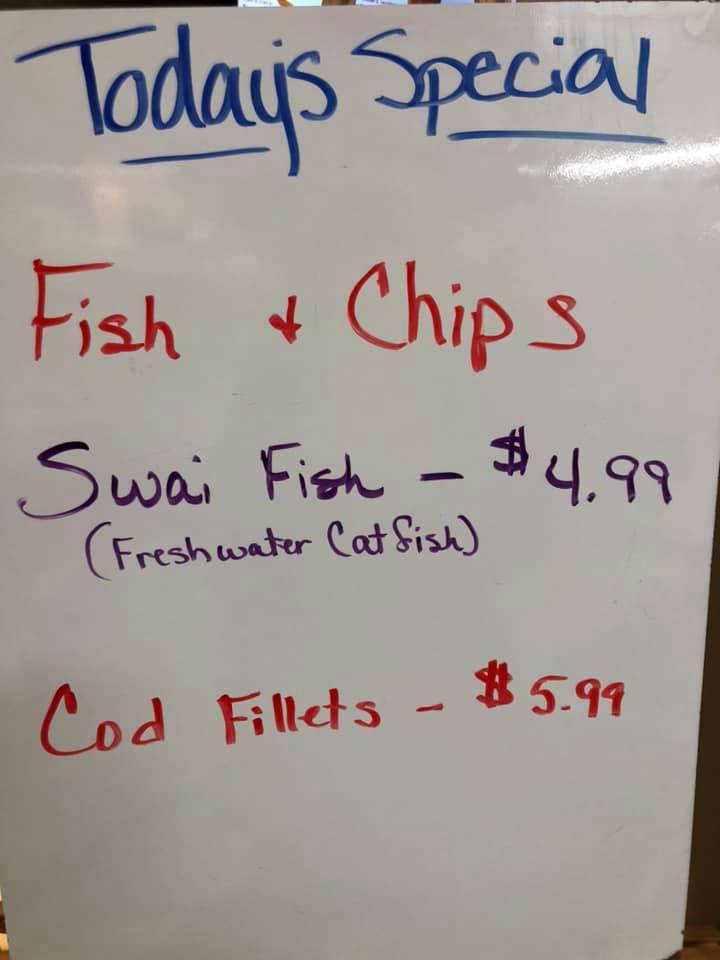 Today's Special
Fish & Chips
Swai Fish - $4.99
(Freshwater Catfish)
Cod Fillets - $5.99